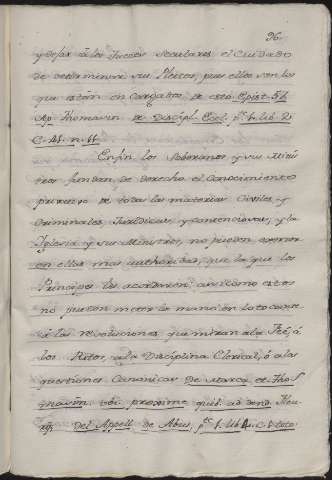 96.
y dejar à los Jueces Seculares el Cuidado
de determinar sus Pleitos, pues ellos son los
que están encargados de esto. Epist. 54
Ap. Thomasin. de Discipl. Eccl. p.e 1. lib. 2.
C. 41. n. 11.
Enfin los Soberanos y sus Minis
tros fundan de derecho el Conocimiento
primero de todas las materias Civiles y
Criminales, Juridicas, y contenciosas, y la
Iglesia y sus Ministros, no pueden exercer
en ellas mas authoridad, que la que los
Principes les acordaren: asi como estos
no pueden meter la mano en lo tocante
à las resoluciones que miran a la Fé, ó
los Ritos, a la Disciplina Clerical, ó a las
questiones Canonicas. De Marca et Tho
masin. ubi proxime
Del Appell. de Abus, p.e 1. lib. 1. C.